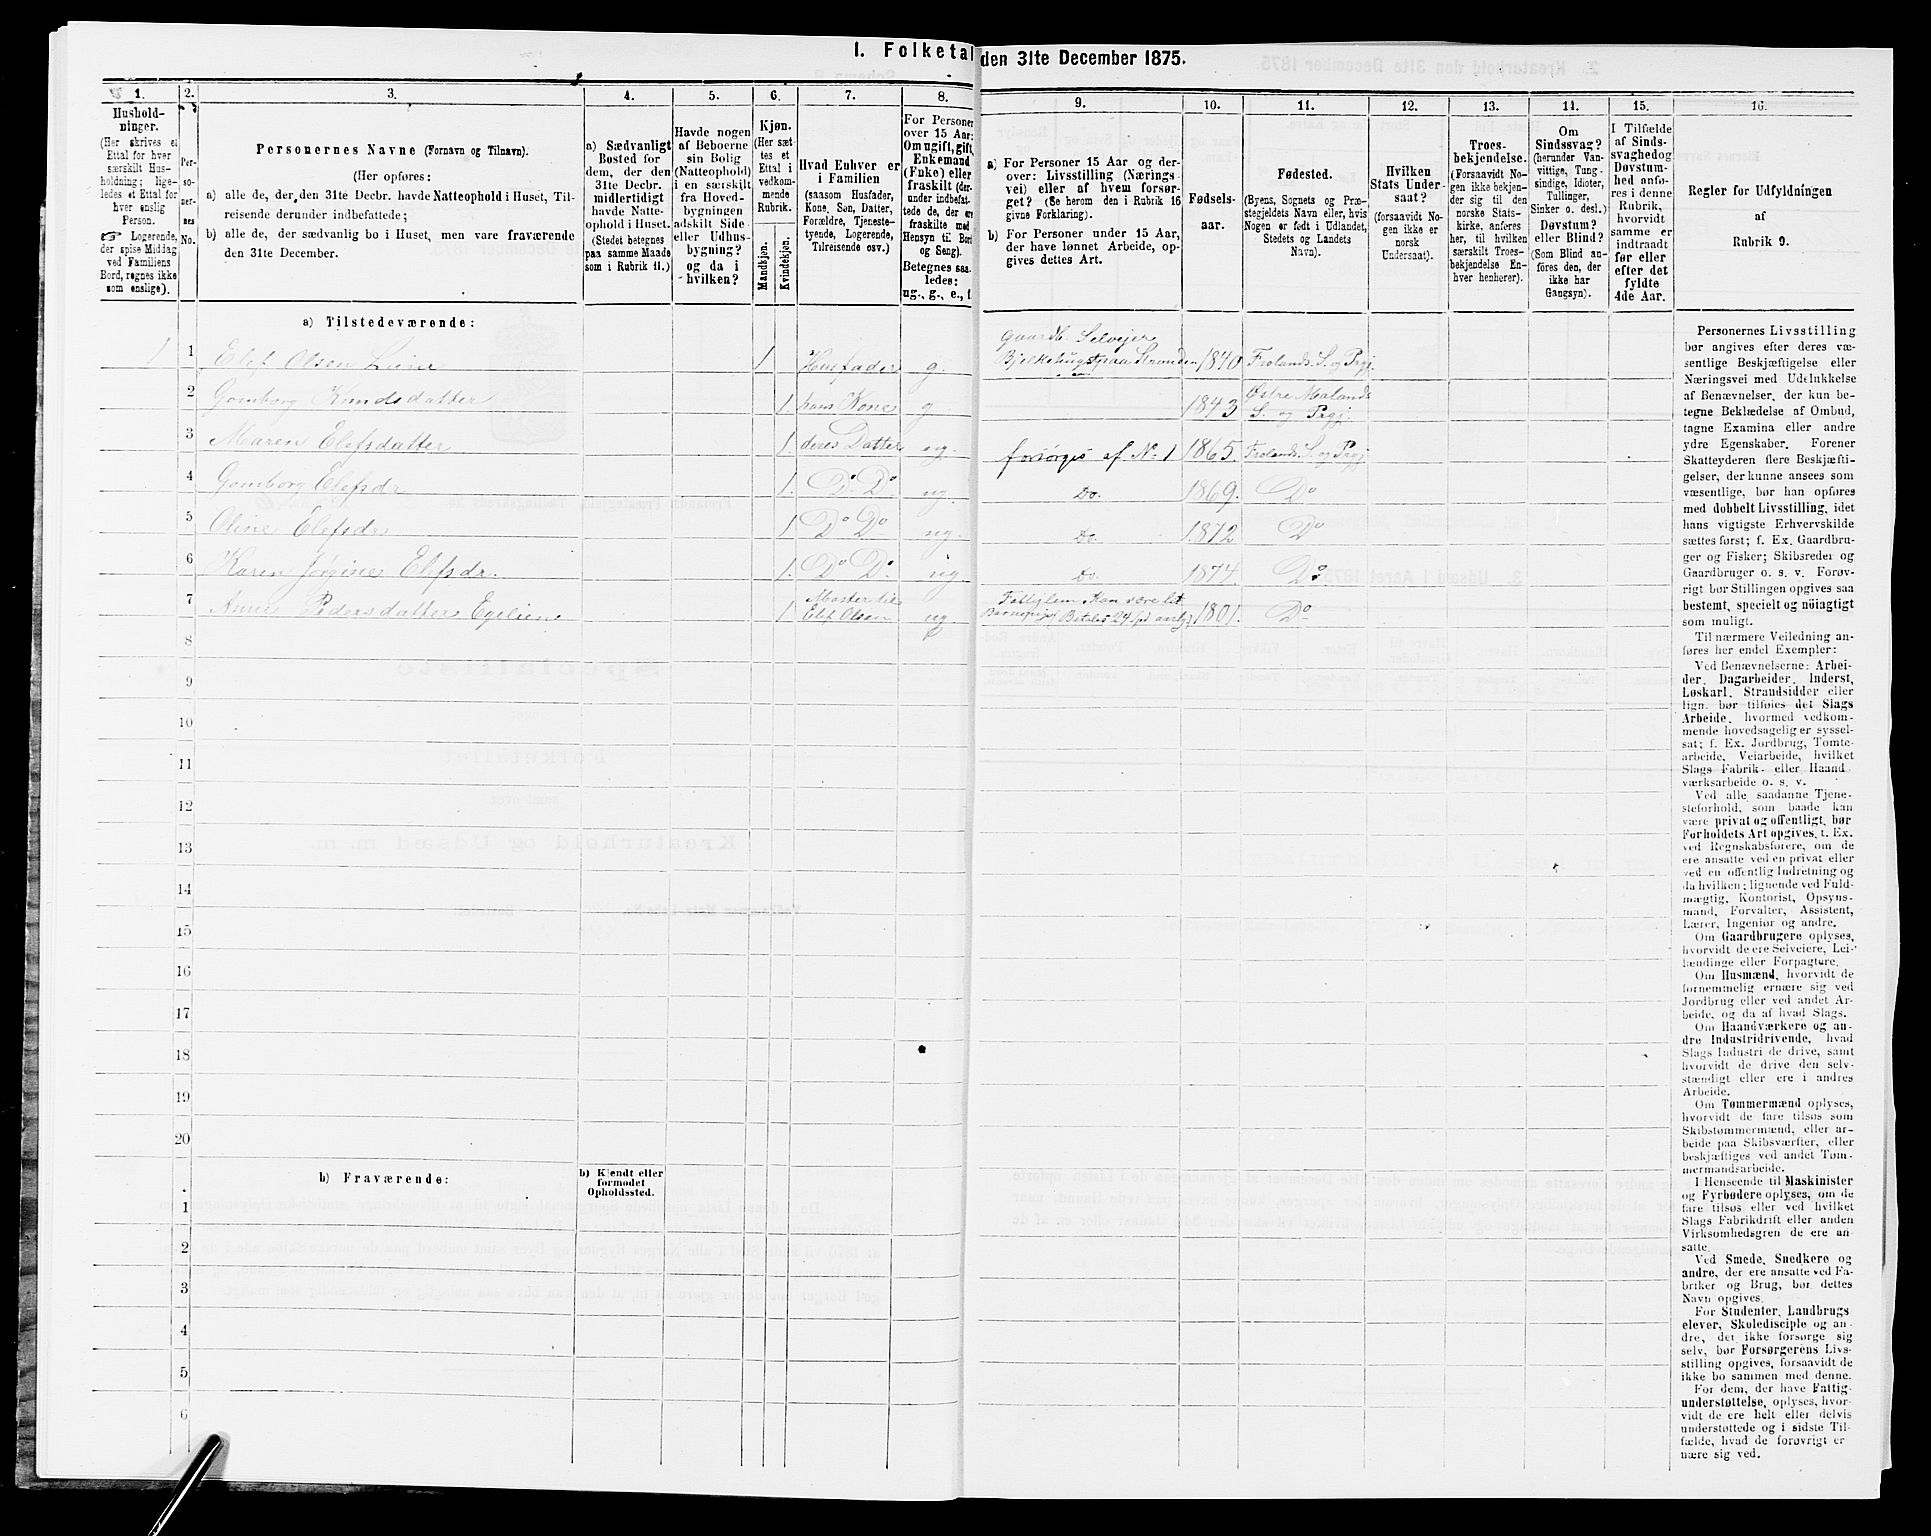 I. Folketal den 31te December 1875.
1.
Hushold-
ninger.
(Her skrives et
Ettal for hver
særskilt Hus-
holdning; lige-
ledes et Ettal for
hver enslig
Person.
☞ Logerende,
der spise Middag
ved Familiens
Bord, regnes ikke
som enslige).
2.
Per-
so-
ner-
nes
No.
3.
Personernes Navne (Fornavn og Tilnavn).
(Her opføres:
a) alle de, der den 31te Decbr. havde Natteophold i Huset, Til-
reisende derunder indbefattede;
b) alle de, der sædvanlig bo i Huset, men vare fraværende
den 31te December.
4.
a) Sædvanligt
Bosted for
dem, der den
31te Decbr.
midlertidigt
havde Natte-
ophold i Huset.
(Stedet betegnes
paa samme Maade
som i Rubrik 11.)
5.
Havde nogen
af Beboerne
sin Bolig
(Natteophold)
i en særskilt
fra Hoved-
bygningen
adskilt Side-
eller Udhus-
bygning?
og da i
hvilken?
6.
Kjøn.
(Her sæt-
tes et
Ettal i
vedkom-
mende
Rubrik.
Mandkjøn.
Kvindekjøn.
7.
Hvad Enhver er
i Familien
(saasom Husfader,
Kone, Søn, Datter,
Forældre, Tjeneste-
tyende, Logerende,
Tilreisende osv.)
8.
For Personer
over 15 Aar:
Om ugift, gift,
Enkemand
(Enke) eller
fraskilt (der-
under indbefat-
tede de, der ere
fraskilte med
Hensyn til Bord
og Seng).
Betegnes saa-
ledes:
ug., g., e., f.
9.
a) For Personer 15 Aar og der-
over: Livsstilling (Nærings-
vei) eller af hvem forsør-
get? (Se herom den i Rubrik 16
givne Forklaring).
b) For Personer under 15 Aar,
der have lønnet Arbeide, op-
gives dettes Art.
10.
Fødsels-
aar.
11.
Fødested.
(Byens, Sognets og Præ-
stegjeldets Navn eller, hvis
Nogen er født i Udlandet,
Stedets og Landets
Navn).
12.
Hvilken
Stats Under-
saat?
(forsaavidt No-
gen ikke er
norsk
Undersaat).
13.
Troes-
bekjendelse.
(Forsaavidt No-
gen ikke bekjen-
der sig til den
norske Stats-
kirke, anføres
her, til hvilken
særskilt Troes-
bekjendelse En-
hver henhører).
14.
Om
Sindssvag?
(herunder Van-
vittige, Tung-
sindige, Idioter,
Tullinger,
Sinker o. desl.)
Døvstum?
eller Blind?
(Som Blind an-
føres den, der
ikke har
Gangsyn).
15.
I Tilfælde
af Sinds-
svaghed og
Døvstum-
hed anfø-
res i denne
Rubrik,
hvorvidt
samme er
indtraadt
før eller
efter det
fyldte
4de Aar.
16.
Regler for Udfyldningen
af
Rubrik 9.
a) Tilstedeværende:
1 1 Elef Olsen 1 Husfader g. Gaardb. Selveier 1840 Frolands S. og Prgj.
2 Gomborg Knudsdatter 1 hans Kone g 1843 Østre Molands S. og Prgj.
3 Maren Elefsdatter 1. deres Datter ug. forsørges af No 1 1865. Frolands S. og Prgj
4 Gomborg Elefsdr 1. Do Do ug. Do. 1869. Do
5 Oline Elefsdr 1 Do Do ug. Do. 1872. Do
6 Karen Jørgine Elefsdr. 1. Do Do ug. Do 1874. Do
7 Anne Pedersdatter Egelien 1 Moster til Elef Olsen ug. 1801. Do
8
9
10
11
12
13
14
15
16
17
18
19
20
b) Fraværende:
b) Kjendt eller
formodet
Opholdssted.
1
2
3
4
5
6
Personernes Livsstilling
bør angives efter deres væ-
sentlige Beskjæftigelse eller
Næringsvei med Udelukkelse
af Benævnelser, der kun be-
tegne Beklædelse af Ombud,
tagne Examina eller andre
ydre Egenskaber. Forener
Skatteyderen flere Beskjæfti-
gelser, der kunne ansees som
væsentlige, bør han opføres
med dobbelt Livsstilling, idet
hans vigtigste Erhvervskilde
sættes først; f. Ex. Gaardbru-
ger og Fisker; Skibsreder og
Gaardbruger o. s. v. Forøv-
rigt bør Stillingen opgives saa
bestemt, specielt og nöiagtigt
som muligt.
Til nærmere Veiledning an-
føres her endel Exempler:
Ved Benævnelserne: Arbei-
der, Dagarbeider, Inderst,
Løskarl, Strandsidder eller
lign. bør tilføies det Slags
Arbeide, hvormed vedkom-
mende hovedsagelig er syssel-
sat; f. Ex. Jordbrug, Tomte-
arbeide, Veiarbeide, hvilket
Slags Fabrik- eller Haand-
værksarbeide o. s. v.
Ved alle saadanne Tjene-
steforhold, som baade kan
være privat og offentligt, bør
Forholdets Art opgives, t. Ex.
ved Regnskabsførere, om de
ere ansatte ved en privat eller
ved en offentlig Indretning og
da hvilken; lignende ved Fuld-
mægtig, Kontorist, Opsyns-
mand, Forvalter, Assistent,
Lærer, Ingeniør og andre.
Om Gaardbrugere oplyses,
hvorvidt de ere Selveiere, Lei-
lændinge eller Forpagtere.
Om Husmænd, hvorvidt de
fornemmelig ernære sig ved
Jordbrug eller ved andet Ar-
beide, og da af hvad Slags.
Om Haandværkere og an-
dre Industridrivende, hvad
Slags Industri de drive, samt
hvorvidt de drive den selv-
stændigt eller ere i andres
Arbeide.
Om Tømmermænd oplyses,
hvorvidt de fare tilsøs som
Skibstømmermænd, eller ar-
beide paa Skibsværfter, eller
beskjæftiges ved andet Tøm-
mermandsarbeide.
I Henseende til Maskinister
og Fyrbødere oplyses, om de
fare tilsøs eller ved hvilket
Slags Fabrikdrift eller anden
Virksomhedsgren de ere an-
satte.
Ved Smede, Snedkere og
andre, der ere ansatte ved Fa-
briker og Brug, bør dettes
Navn opgives.
For Studenter, Landbrugs-
elever, Skoledisciple og an-
dre, der ikke forsørge sig
selv, bør Forsørgerens Livs-
stilling opgives, forsaavidt de
ikke bo sammen med denne.
For dem, der have Fattig-
understøttelse, oplyses, hvor-
vidt de ere helt eller delvis
understøttede og i sidste Til-
fælde, hvad de forøvrigt er-
nære sig ved.